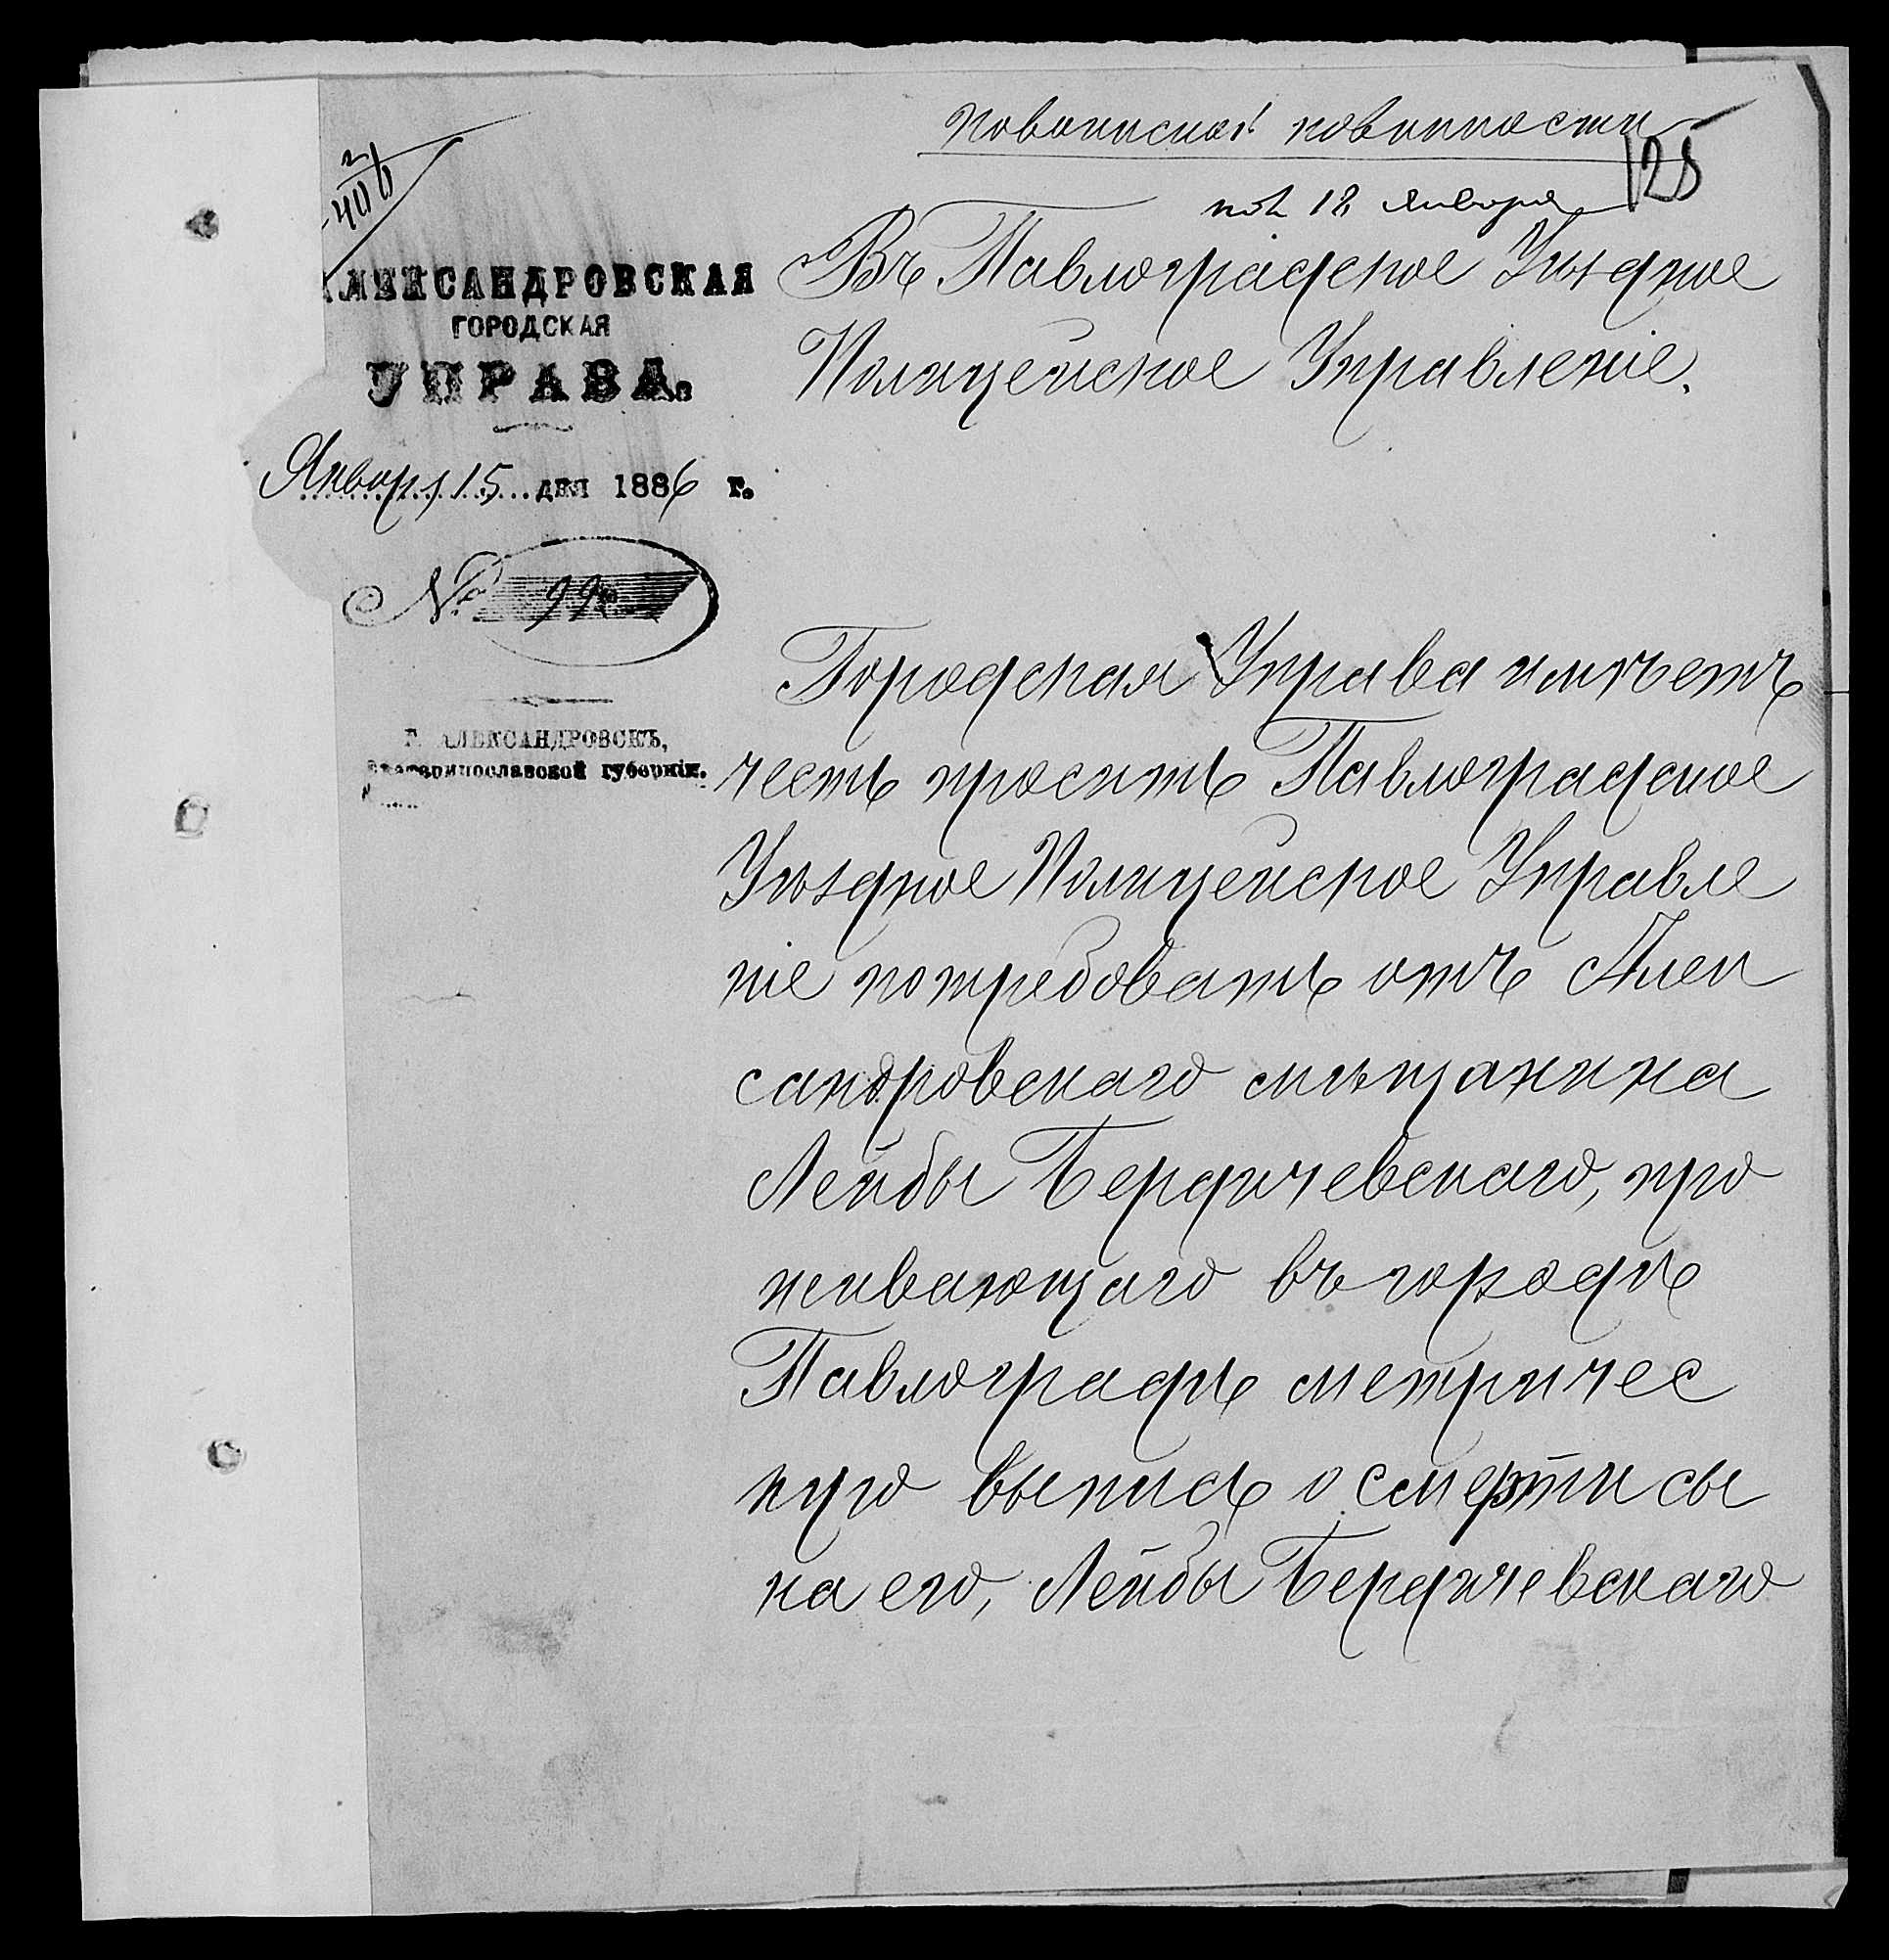 По воинской повинности
128
пол 18 Января
406
АЛЕКСАНДРОВСКАЯ
ГОРОДСКАЯ
УПРАВА.
Января 15 дня 1886 г.
№
Г. АЛЕКСАНДРОВСКЪ,
Екатеринославской губерніи.
Въ Павлоградское Уѣздное
Полицейское Управленіе.
Городская Управа имѣетъ
честь просить Павлоградское
Уѣздное Полицейское Управле
ніе потребовать отъ Алек
сандровскаго мѣщанина
Лейбы Бердичевскаго, про
живающаго въ городѣ
Павлоградѣ метричес
кую выпись о смерти сы
на его, Лейбы Бердичевскаго